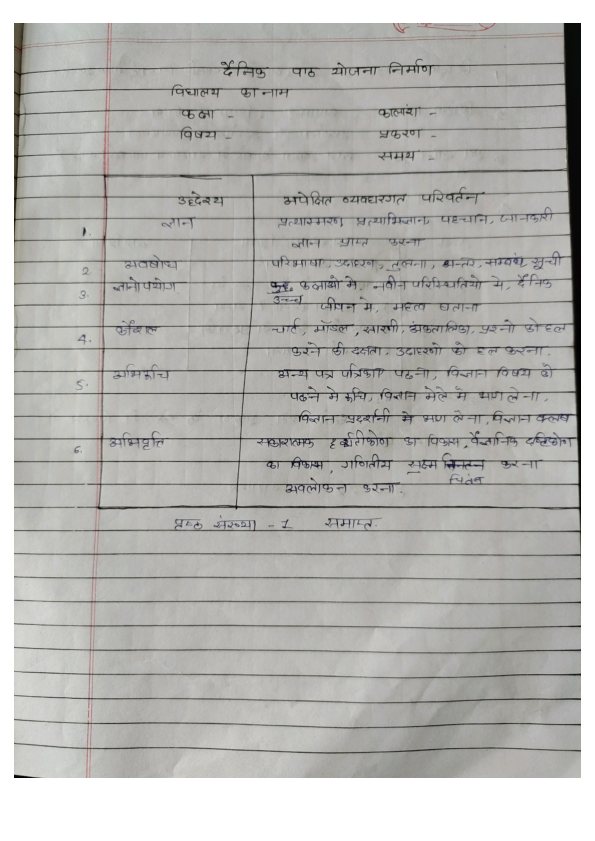 दैनिक पाठ योजना निर्माण
विद्यालय का नाम
कक्षा - कालांश -
विषय - प्रकरण -
समय -
उद्देश्य अपेक्षित व्यवहारगत परिवर्तन
1. ज्ञान प्रत्यास्मरण, प्रत्याभिज्ञान, पहचान, जानकारी
ज्ञान प्राप्त करना
2. अवबोध परिभाषा, उदाहरण, तुलना, अन्तर, सम्बंध, सूची
3. ज्ञानोपयोग कक्षाओ मे, नवीन परिस्थितियो मे, दैनिक
उच्च जीवन मे, महत्व बताना
4. कौशल चार्ट, मॉडल, सारणी, अंकतालिका, प्रश्नो को हल
करने की दक्षता, उदाहरणो को हल करना.
5. अभिरूचि अन्य पत्र पत्रिका पढना, विज्ञान विषय को
पढने मे रूचि, विज्ञान मेले मे भाग लेना,
विज्ञान प्रदर्शनी मे भाग लेना, विज्ञान क्लब
6. अभिवृत्ति सकारात्मक का विकास, वैज्ञानिक दृष्टिकोण
का विकास, गणितीय सूक्ष्म करना
चिंतन
अवलोकन करना.
पृष्ठ संख्या - 1 समाप्त.